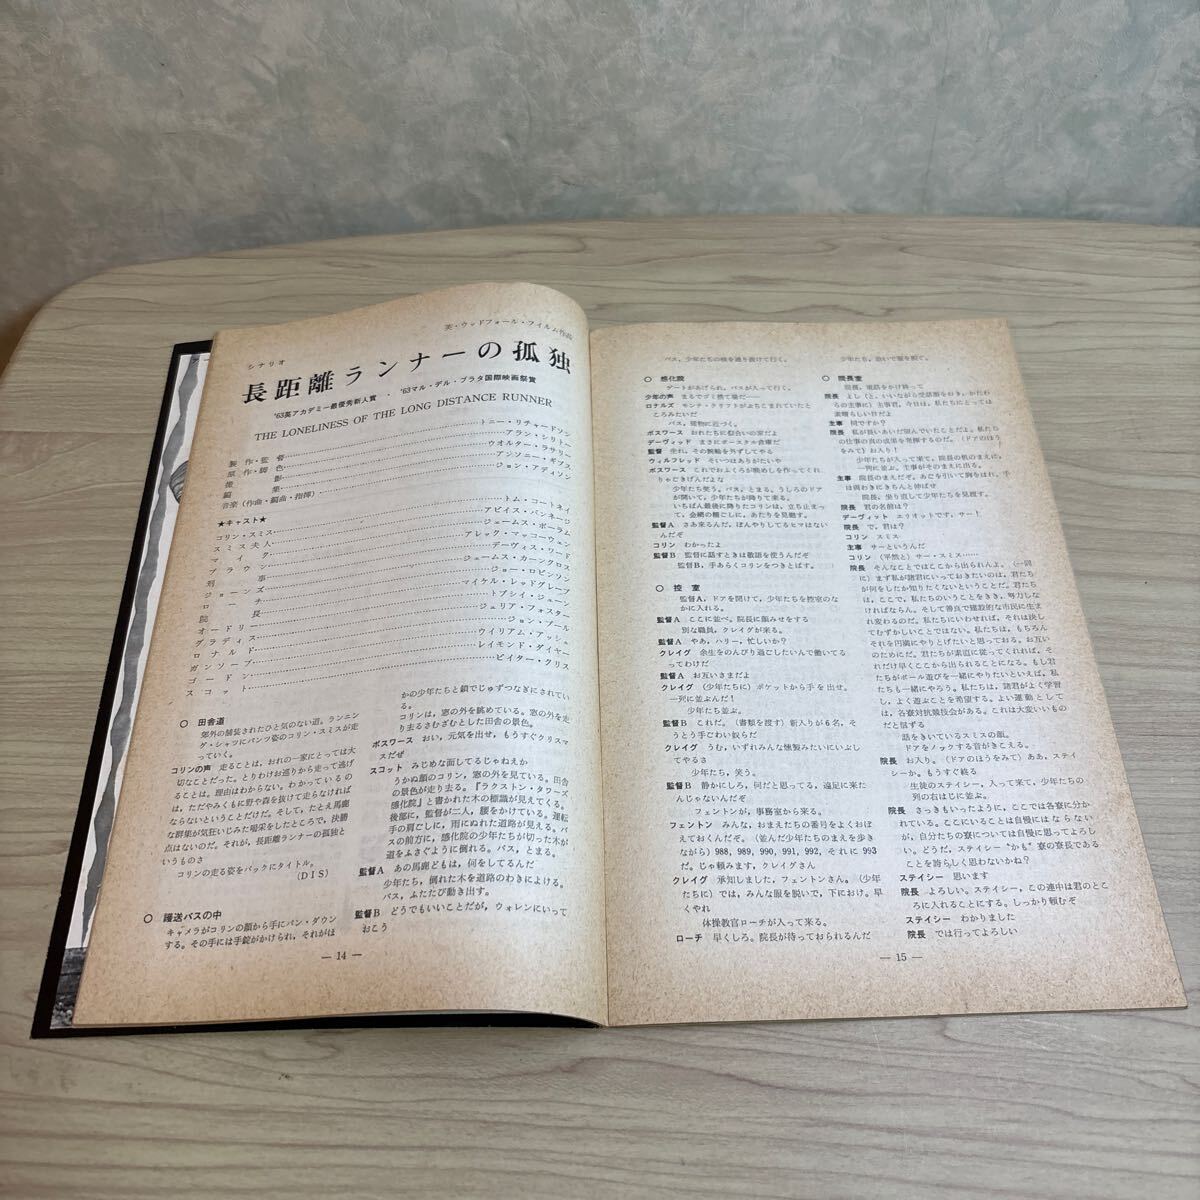 英・ウッドフォール・フイルム作品
シナリオ
長距離ランナーの孤独
'63英アカデミー最優秀新人賞 ・ '63マル・デル・プラタ国際映画祭賞
THE LONELINESS OF THE LONG DISTANCE RUNNER
製作・監督 トニー・リチャードソン
原作・脚色 アラン・シリトー
撮影 ウオルター・ラサリー
編集 アンソニー・ギブス
音楽(作曲・編曲・指揮) ジョン・アディソン
★キャスト★
コリン・スミス トム・コートネイ
スミス夫人 アビイス・バンネージ
マイク ジェームス・ボーラム
ブラウン アレック・マッコーウェン
刑事 デーヴィス・ワード
ジョーンズ ジェームス・カーングロス
ローチ ジョー・ロビンソン
院長 マイケル・レッドグレーブ
オードリー トプシイ・ジェーン
グラディス ジュリア・フォスター
ロナルド ジョン・ブール
ガンソープ ウイリアム・アッシュ
ゴードン レイモンド・ダイヤー
スコット ピイター・クリス
○ 田舎道
郊外の舗装されたひと気のない道。ランニン
グ・シャツにパンツ姿のコリン・スミスが走
っていく。
コリンの声 走ることは、おれの一家にとっては大
切なことだった。とりわけお巡りから走って逃げ
ることは。理由はわからない。わかっているの
は、ただやみくもに野や森を抜けて走らなければ
ならないということだけだ。そして、たとえ馬鹿
な群集が気狂いじみた喝采をしたところで、決勝
点はないのだ。それが、長距離ランナーの孤独と
いうものさ
コリンの走る姿をバックにタイトル。
(DIS)
○ 護送バスの中
キャメラがコリンの顔から手にパン・ダウン
する。その手には手錠がかけられ、それがほ
かの少年たちと鎖でじゅずつなぎにされてい
る。
コリンは、窓の外を眺めている。窓の外を走
り去るさむざむとした田舎の景色。
ボスワース おい、元気を出せ、もうすぐクリスマ
スだぜ
スコット みじめな面してるじゃねえか
うかぬ顔のコリン、窓の外を見ている。田舎
の景色が走り去る。『ラクストン・タワーズ
感化院』と書かれた木の標識が見えてくる。
後部に、監督が二人、腰をかけている。運転
手の肩ごしに、雨にぬれた道路が見える。バ
スの前方に、感化院の少年たちが切った木が
道をふさぐように倒れる。バス、とまる。
監督A あの馬鹿どもは、何をしてるんだ
少年たち、倒れた木を道路のわきによける。
バス、ふたたび動き出す。
監督B どうでもいいことだが、ウォレンにいって
おこう
— 14 —
バス、少年たちの横を通り抜けて行く。
○ 感化院
ゲートがあげられ、バスが入って行く。
少年の声 まるでゴミ捨て場だ――
ロナルズ モンテ・クリフトがぶちこまれていたと
ころみたいだ
バス、建物に近づく。
ボスワース おれたちに似合いの家だよ
デーヴィッド まさにボースタル倉庫だ
監督 坐れ。その腕輪を外ずしてやる
ウィルフレッド そいつはありがたいや
ボスワース これでおふくろが晩めしを作ってくれ
りゃごきげんだよな
少年たち笑う。バス、とまる。うしろのドア
が開いて、少年たちが降りて来る。
いちばん最後に降りたコリンは、立ち止まっ
て、金網の柵ごしに、あたりを見廻す。
監督A さあ来るんだ。ぼんやりしてるヒマはない
んだぞ
コリン わかったよ
監督B 監督に話すときは敬語を使うんだぞ
監督B、手あらくコリンをつきとばす。
○ 控室
監督A、ドアを開けて、少年たちを控室のな
かに入れる。
監督A ここに並べ。院長に顔みせをする
別な職員、クレイグが来る。
監督A やあ、ハリー、忙しいか?
クレイグ 余生をのんびり過ごしたいんで働いてる
ってわけだ
監督A お互いさまだよ
クレイグ (少年たちに)ポケットから手を出せ。
一列に並ぶんだ!
少年たち並ぶ。
監督B これだ。(書類を渡す)新入りが6名、そ
うとう手ごわい奴らだ
クレイグ うむ、いずれみんな燻製みたいにいぶし
てやるさ
少年たち、笑う。
監督B 静かにしろ、何だと思ってる、遠足に来た
んじゃないんだぞ
フェントンが、事務室から来る。
フェントン みんな、おまえたちの番号をよくおぼ
えておくんだぞ。(並んだ少年たちのまえを歩き
ながら)988, 989, 990, 991, 992, それに993
だ。じゃ頼みます、クレイグさん
クレイグ 承知しました、フェントンさん。(少年
たちに)では、みんな服を脱いで、下におけ。早
くやれ
体操教官ローチが入って来る。
ローチ 早くしろ。院長が待っておられるんだ
少年たち、急いで服を脱ぐ。
○ 院長室
院長、電話をかけ終って
院長 よし(と、いいながら受話器をおき、かたわ
らの主事に)主事君、今日は、私たちにとっては
素晴らしい日だよ
主事 何ですか?
院長 私が長いあいだ望んでいたことだよ。私たち
の仕事の真の成果を発揮するのだ。(ドアのほう
をみて)お入り!
少年たちが入って来て、院長の机のまえに、
一列に並ぶ。主事がそのまえに出る。
主事 院長のまえだぞ。あごを引いて胸をはれ。手
は両わきにきちんと伸ばせ
院長、坐り直して少年たちを見渡す。
院長 君の名前は?
デーヴィット エリオットです、サー!
院長 で、君は?
コリン スミス
主事 サーというんだ
コリン (平然と)サー・スミス……
院長 そんなことではここから出られんよ。(一同
に)まず私が諸君にいっておきたいのは、君たち
が何をしたか知りたくないということだよ。君たち
は、ここで、私たちのいうことをきき、努力しな
ければならん。そして善良で建設的な市民に生ま
れ変わるのだ。私たちにいわせれば、それは決し
てむずかしいことではない。私たちは、もちろん
それを円満にやりとげたいと思っておる。お互い
のためにだ。君たちが素直に従ってくれれば、そ
れだけ早くここから出られることになる。もし君
たちがボール遊びを一緒にやりたいといえば、私
たちも一緒にやろう。私たちは、諸君がよく学習
し、よく遊ぶことを希望する。よい運動として
は、各寮対抗競技会がある。これは大変いいもの
だと信ずる
話をきいているスミスの顔。
ドアをノックする音がきこえる。
院長 お入り。(ドアのほうをみて)ああ、ステイ
シーか。もうすぐ終る
生徒のステイシー、入って来て、少年たちの
列の右はじに並ぶ。
院長 さっきもいったように、ここでは各寮に分か
れている。ここにいることは自慢にはならない
が、自分たちの寮については自慢に思ってよろし
い。どうだ、ステイシー“かも”寮の寮長であるこ
とを誇らしく思わないかね?
ステイシー 思います
院長 よろしい。ステイシー、この連中は君のとこ
ろに入れることにする。しっかり頼むぞ
ステイシー わかりました
院長 では行ってよろしい
— 15 —